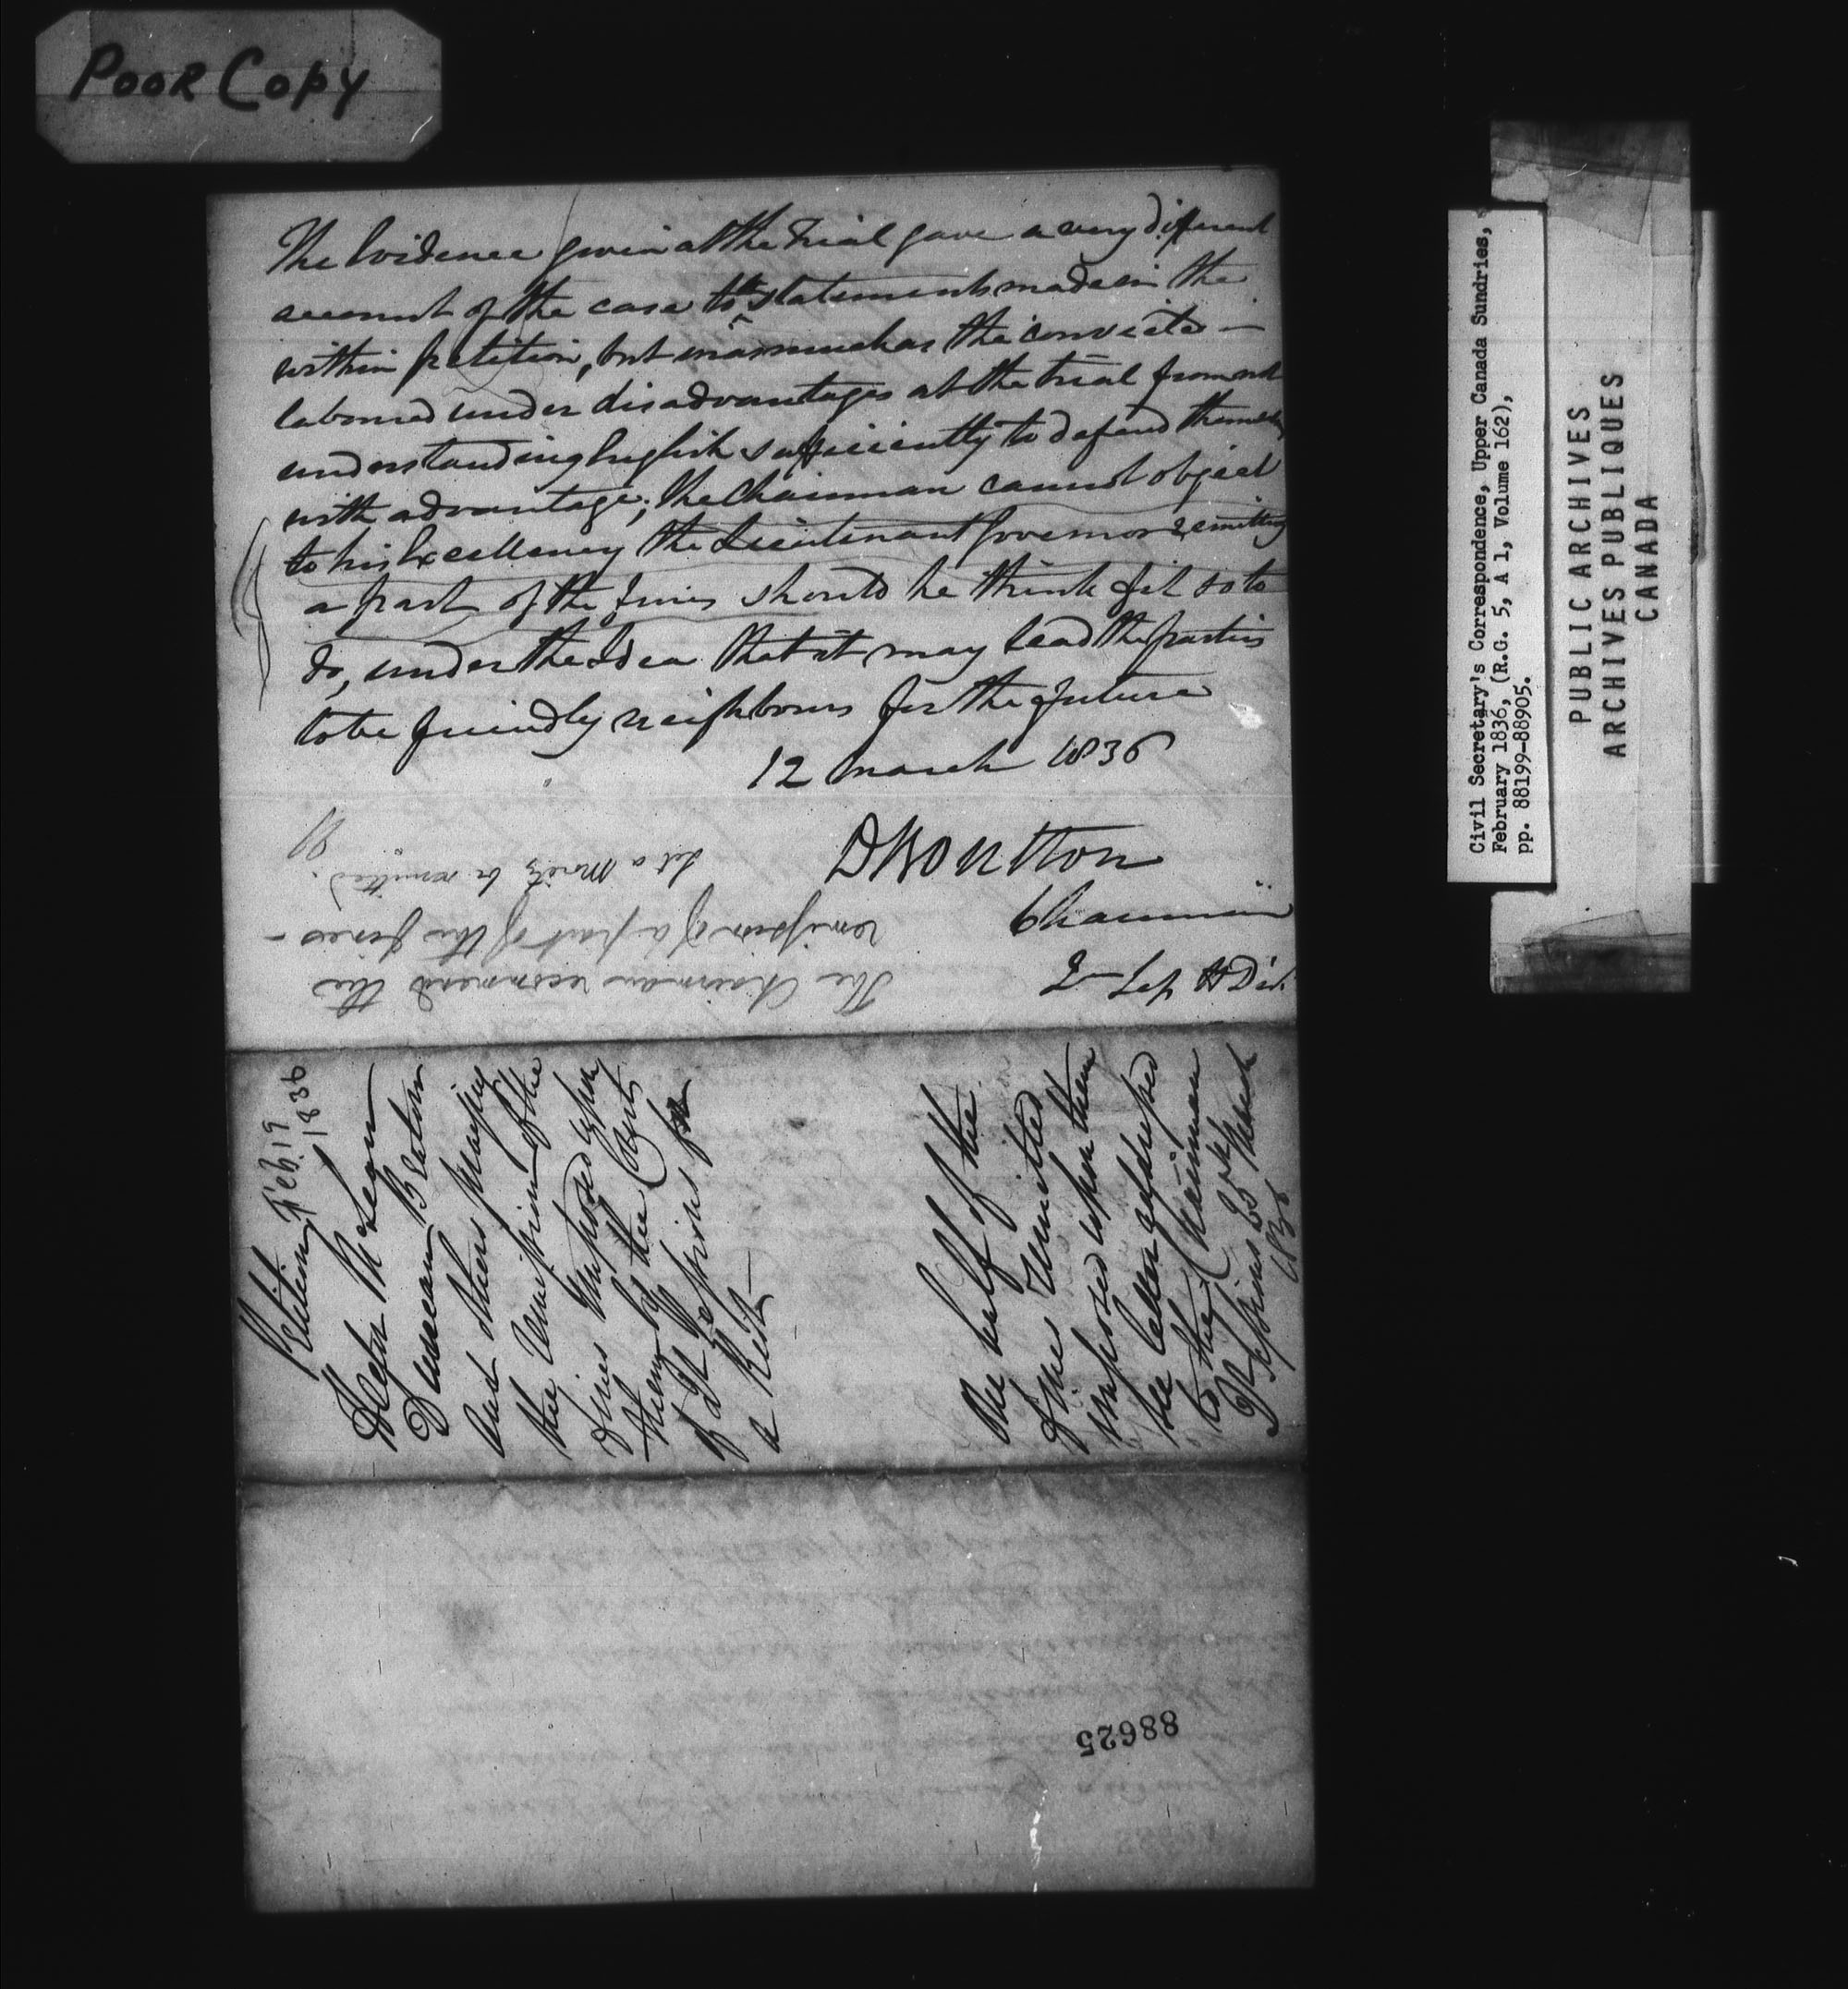 POOR COPY
The Evidence given at the Trial gave a very different
account of the case to the statements made in the
within petition, but inasmuch as the convicts —
laboured under disadvantages at the trial from not
understanding English sufficiently to defend themselves
with advantage; the Chairman cannot object
to his Excellency the Lieutenant Governor remitting
a part of the fines should he think fit so to
do, under the Idea that it may lead the parties
to be friendly neighbours for the future
12 march 1836
D Boulton
Chairman
H Dist
The Chairman recommend the
remission of a part of the fines —
Let a Moiety be remitted.
Petition Feb. 19 1836
McLean
Duncan Beaton
and others praying
the remission of the
Fines imposed upon
them by the Court
of Qr Sessions for
a Riot —
One half of the
fines remitted
imposed upon them
see letter addressed
to the Chairman
Qr Sessions 25th March
1836
88625
Civil Secretary's Correspondence, Upper Canada Sundries,
February 1836, (R.G. 5, A 1, Volume 162),
pp. 88199-88905.
PUBLIC ARCHIVES
ARCHIVES PUBLIQUES
CANADA